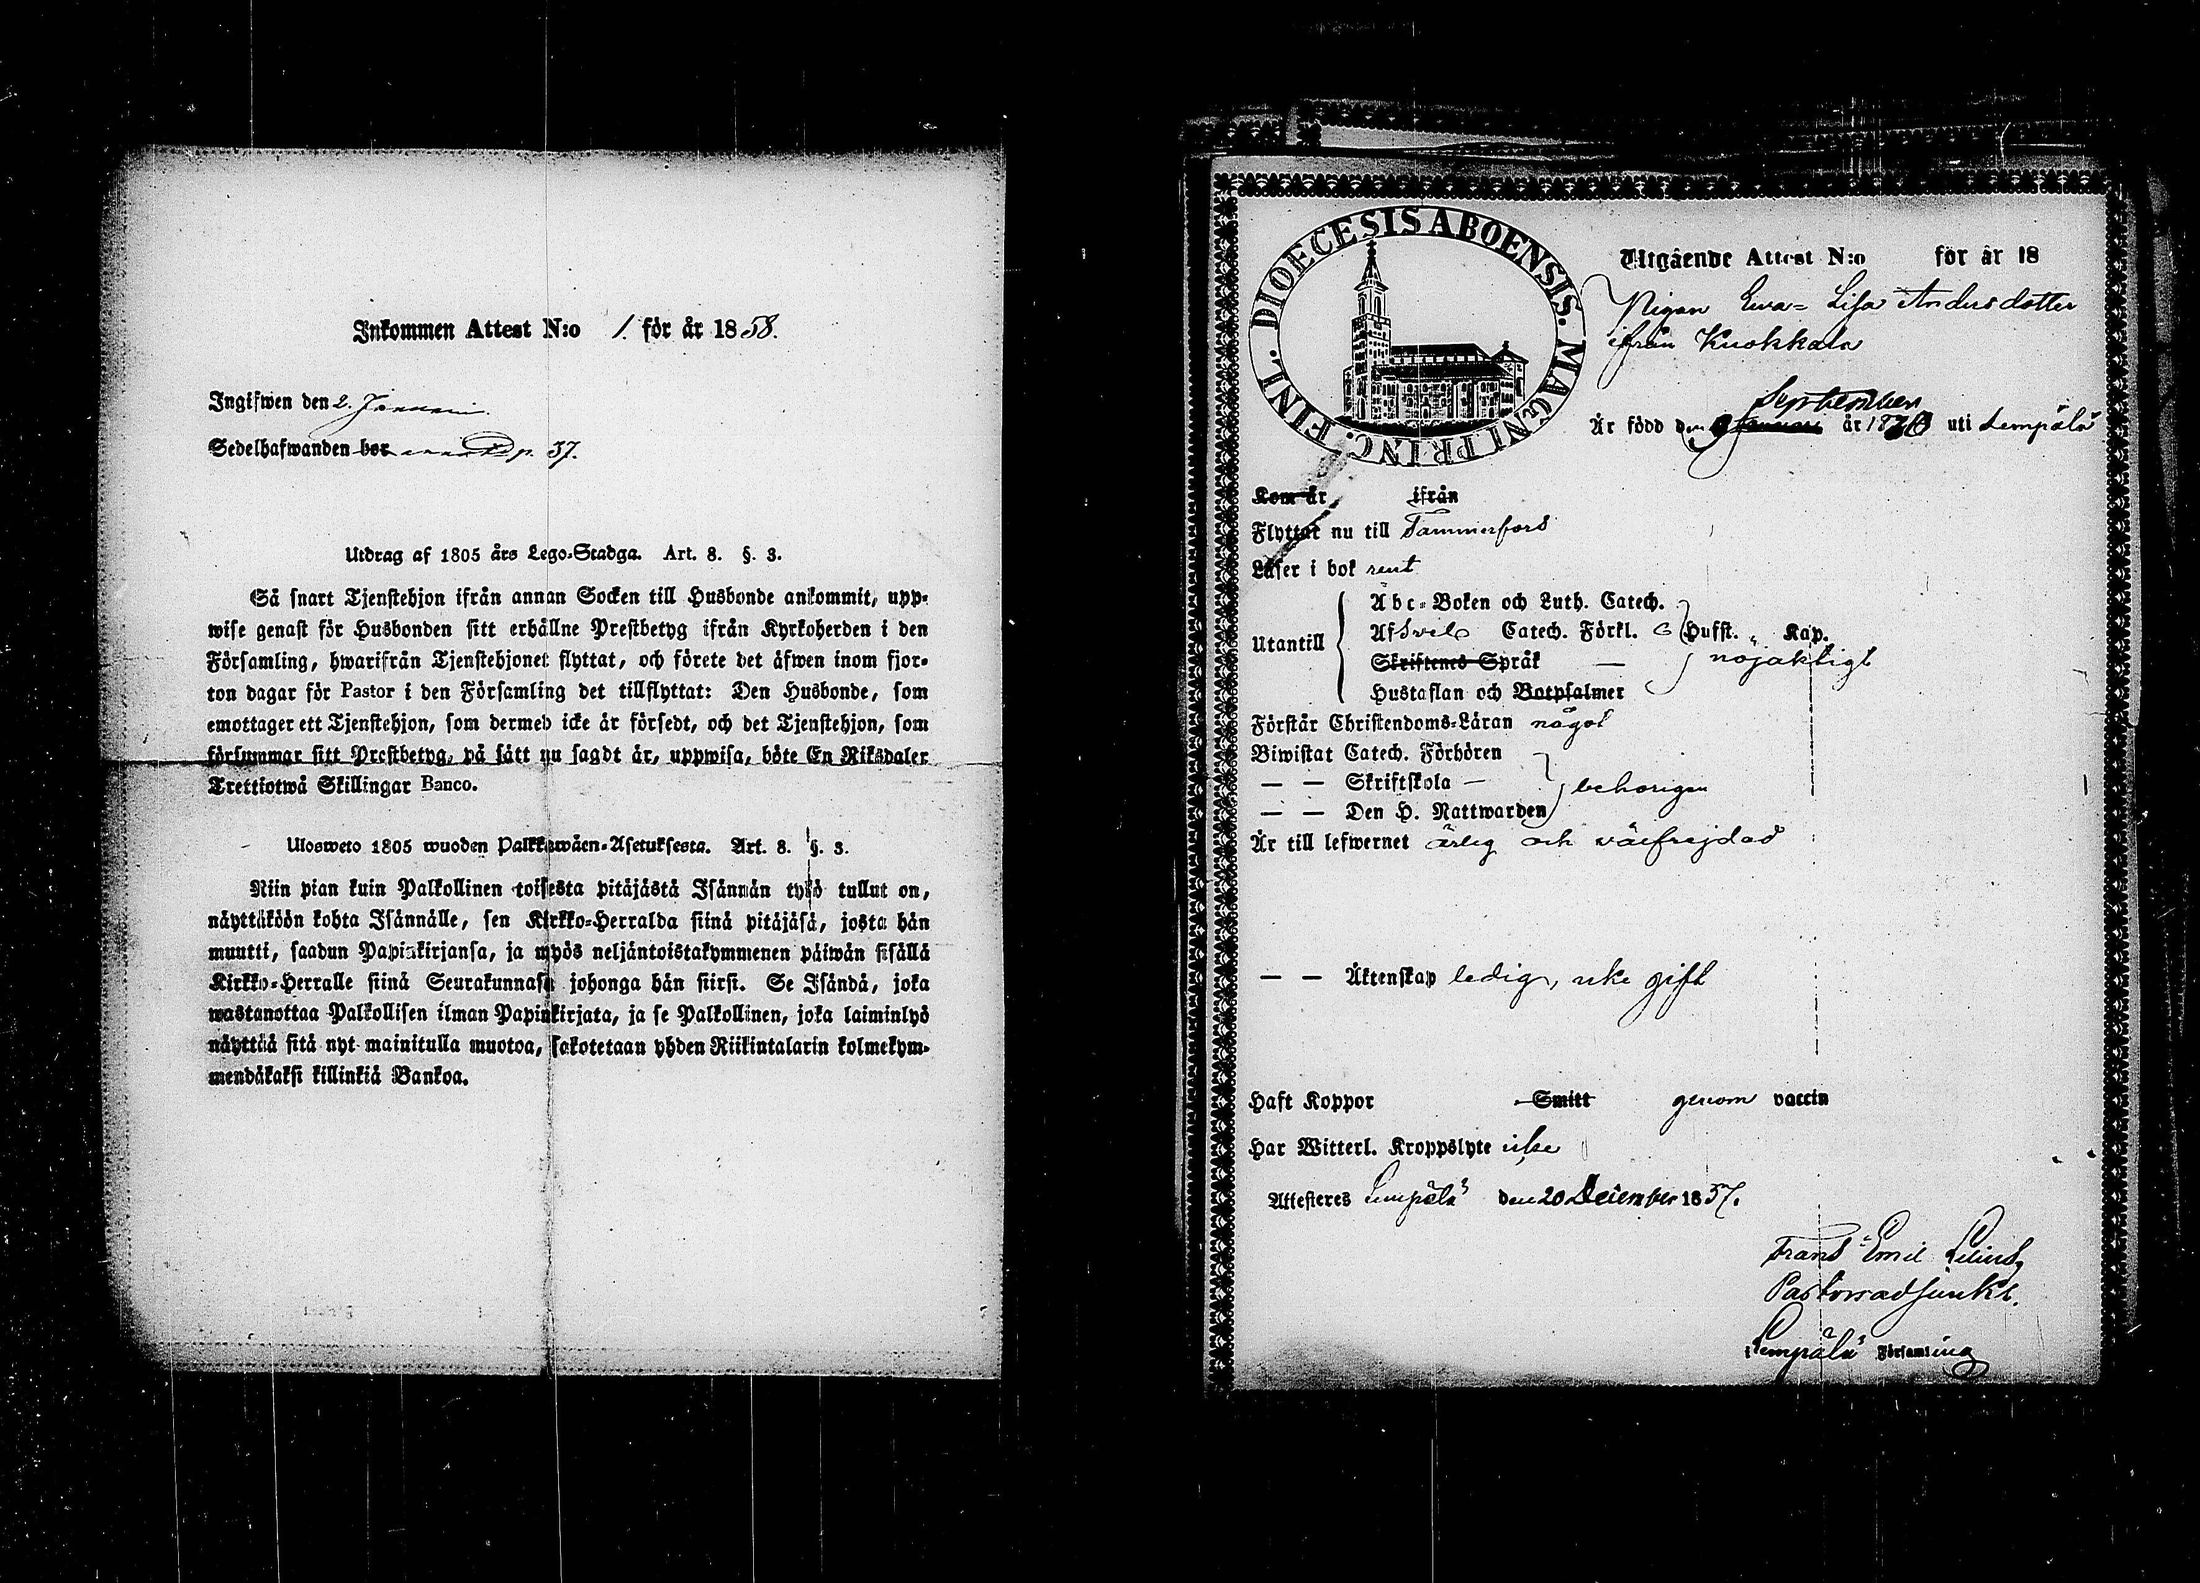 Inkommen Attest N:o 1. för år 1858.
Ingifwen den 2. Januari
Sedelhafwanden bor p. 37.
Utdrag af 1805 års Lego-Stadga. Art. 8. §. 3.
Så snart Tjenstehjon ifrån annan Socken till Husbonde ankommit, upp-
wise genast för Husbonden sitt erhållne Prestbetyg ifrån Kyrkoherden i den
Församling, hwarifrån Tjenstehjonet flyttat, och förete det äfwen inom fjor-
ton dagar för Pastor i den Församling det tillflyttat: Den Husbonde, som
emottager ett Tjenstehjon, som dermed icke är försedt, och det Tjenstehjon, som
försummar sitt Prestbetyg, på sätt nu sagdt är, uppwisa, böte En Riksdaler
Trettiotwå Skillingar Banco.
Ulosweto 1805 wuoden Palkkawäen-Asetuksesta. Art. 8. §. 3.
Niin pian kuin Palkollinen toisesta pitäjästä Isännän tykö tullut on,
näyttäköön kohta Isännälle, sen Kirkko-Herralda siinä pitäjäsä, josta hän
muutti, saadun Papinkirjansa, ja myös neljäntoistakymmenen päiwän sisällä
Kirkko-Herralle siinä Seurakunnasa johonga hän siirsi. Se Isändä, joka
wastanottaa Palkollisen ilman Papinkirjata, ja se Palkollinen, joka laiminlyö
näyttää sitä nyt mainitulla muotoa, sakotetaan yhden Riikintalarin kolmekym-
mendäkaksi killinkiä Bankoa.
DIOECESIS ABOENSIS. MAGNI PRINC. FINL.
Utgående Attest N:o för år 18
Pigan Ewa-Lisa Andersdotter
ifrån Kuokkala
September
Är född den Januari år 18 uti Lempälä
Kom år ifrån
Flyttat nu till Tammerfors
Läser i bok rent
Utantill
Abc-Boken och Luth. Catech.
Af Svebel. Catech. Förkl. Hufst. Kap.
Skriftenes Språk — nöjaktigt
Hustaflan och Botpsalmer
Förstår Christendoms-Läran något
Biwistat Catech. Förhören
— — Skriftskola — behörigen
— — Den H. Nattwarden
Är till lefwernet ärlig och välfrejdad
— — Äktenskap ledig, icke gift
Haft Koppor Smitt genom vaccin
Har Witterl. Kroppslyte icke
Attesteres Lempälä den 20 December 1857.
Frans Emil
Pastorsadjunkt.
i Lempälä Församling